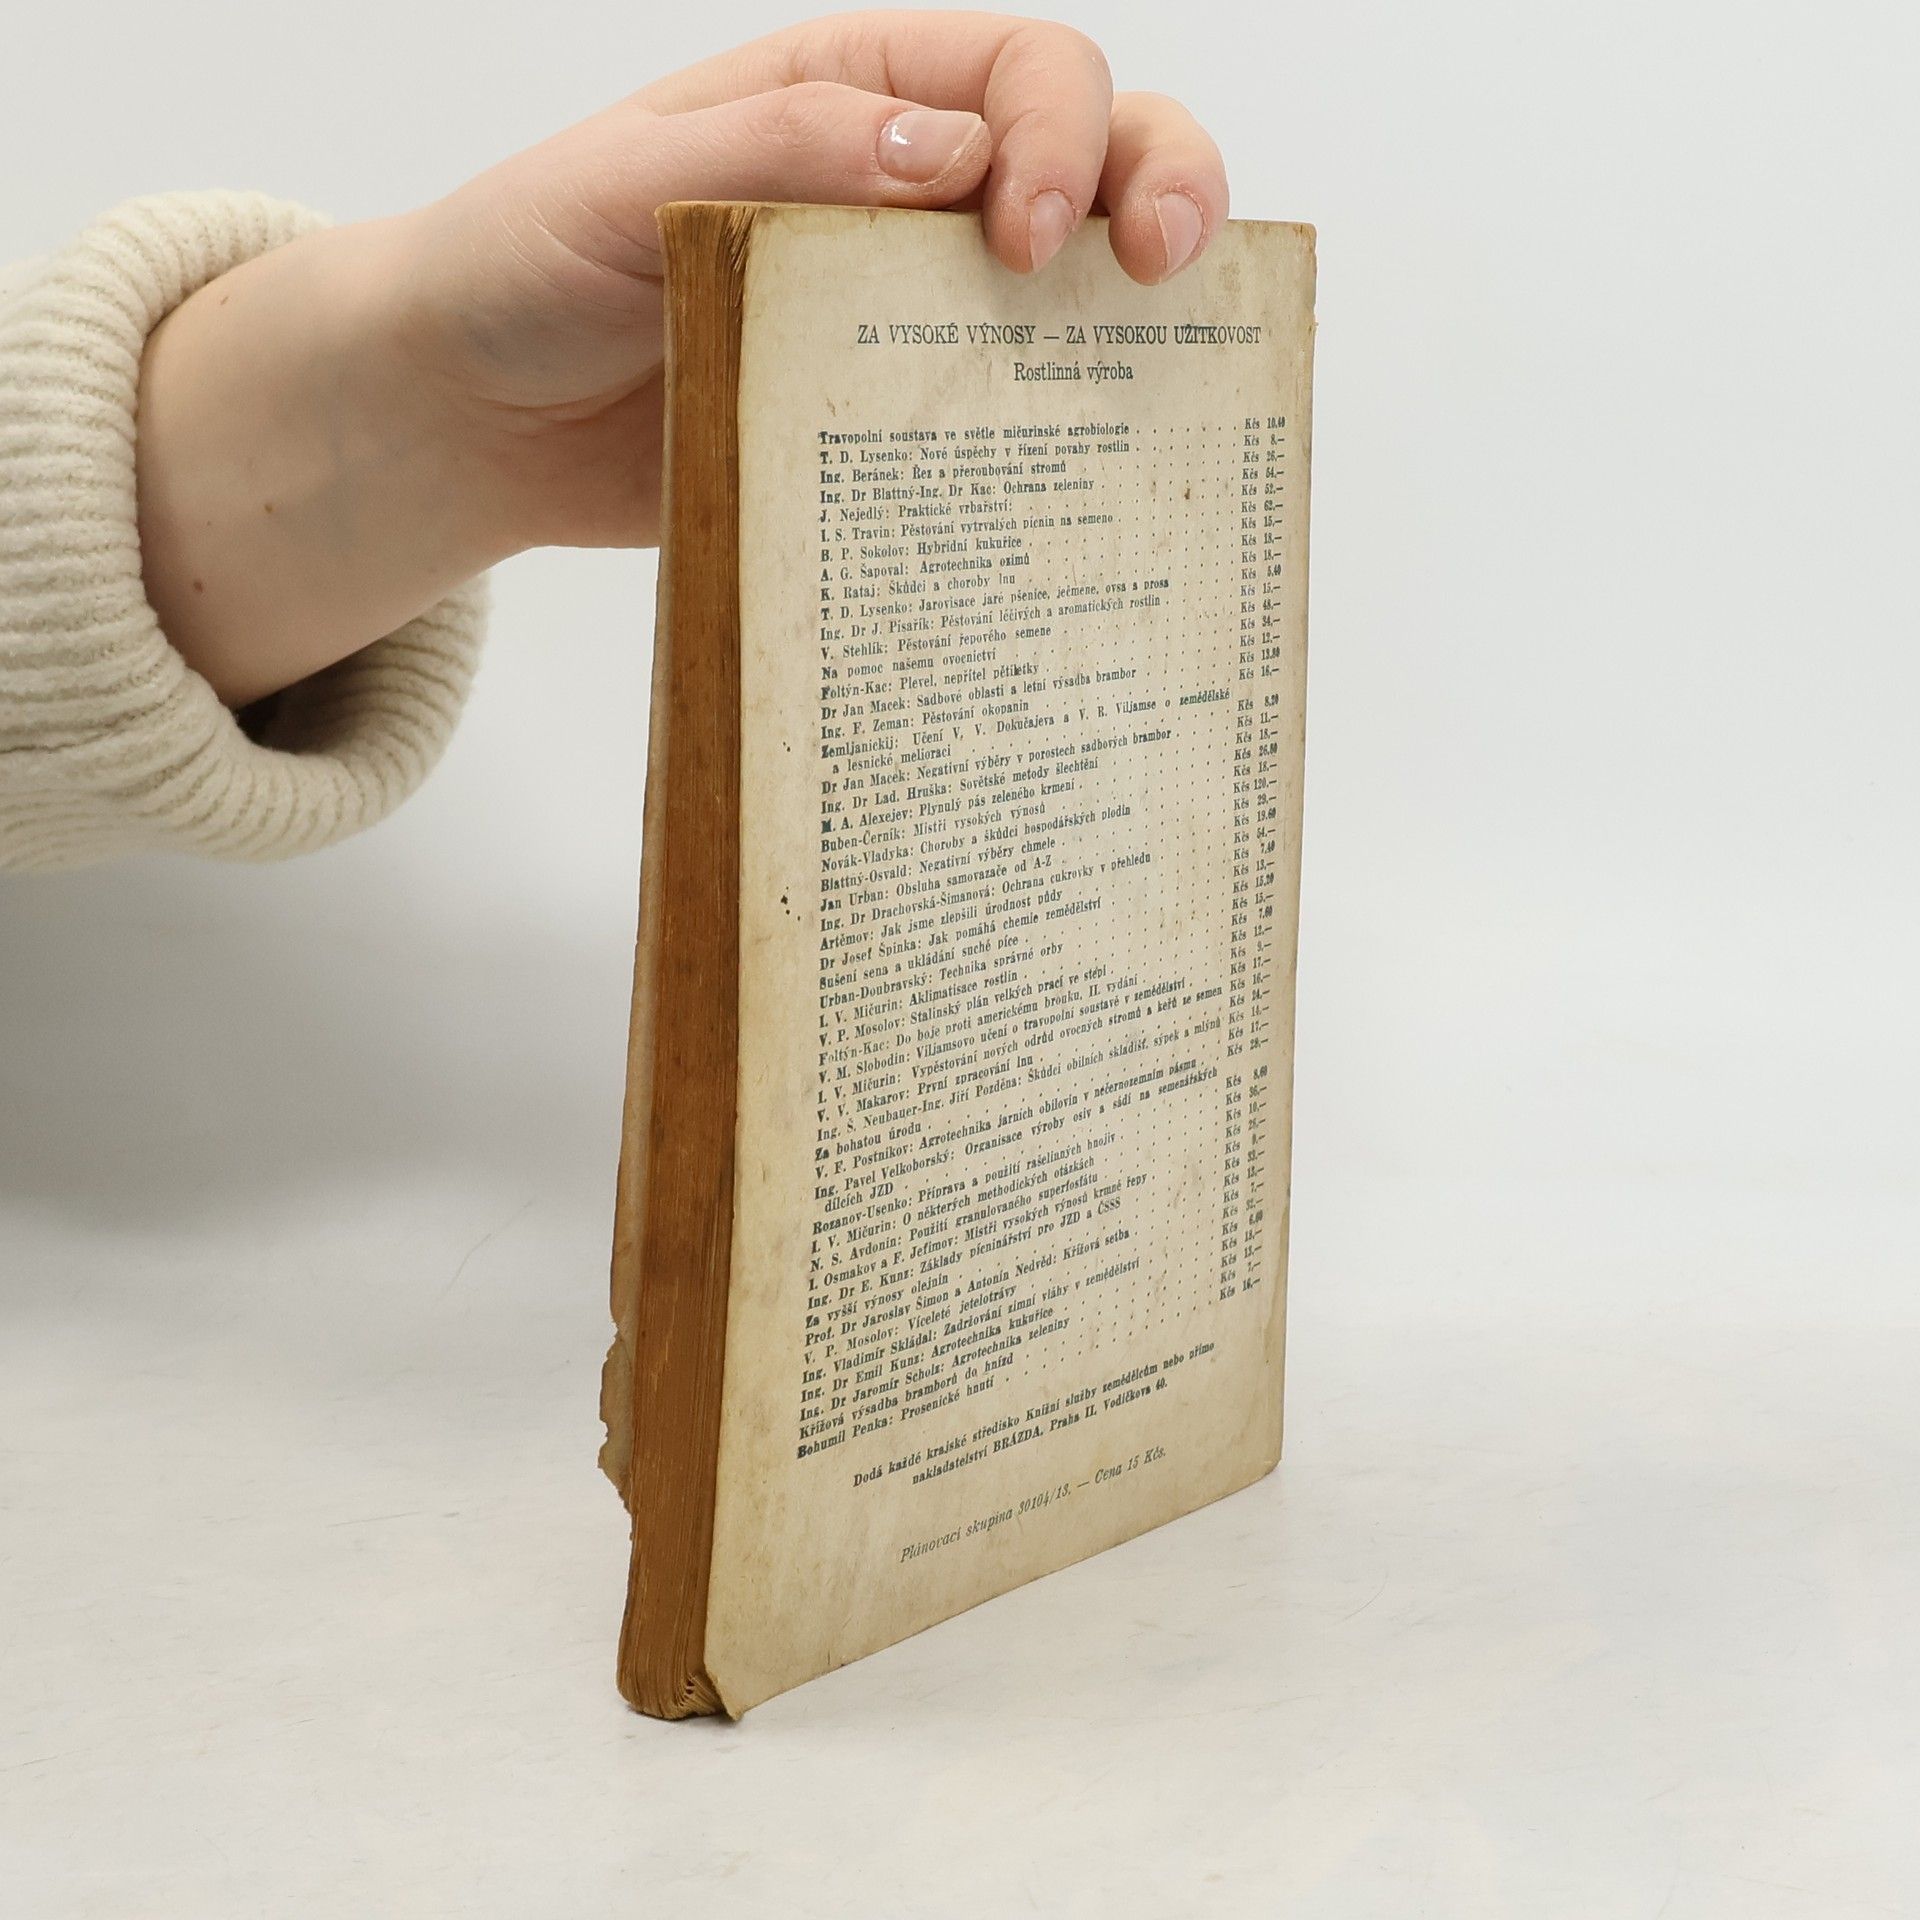 ZA VYSOKÉ VÝNOSY — ZA VYSOKOU UŽITKOVOST
Rostlinná výroba
Travopolní soustava ve světle mičurinské agrobiologie . . . . . . . Kčs 10,40
T. D. Lysenko: Nové úspěchy v řízení povahy rostlin . . . . . . . Kčs 8,—
Ing. Beránek: Řez a přeroubování stromů . . . . . . . Kčs 26,—
Ing. Dr Blattný-Ing. Dr Kac: Ochrana zeleniny . . . . . . . Kčs 54,—
J. Nejedlý: Praktické vrbařství: . . . . . . . Kčs 52,—
I. S. Travin: Pěstování vytrvalých pícnin na semeno . . . . . . . Kčs 62,—
B. P. Sokolov: Hybridní kukuřice . . . . . . . Kčs 15,—
A. G. Šapoval: Agrotechnika ozimů . . . . . . . Kčs 18,—
K. Rataj: Škůdci a choroby lnu . . . . . . . Kčs 18,—
T. D. Lysenko: Jarovisace jaré pšenice, ječmene, ovsa a prosa . . . . Kčs 5,40
Ing. Dr J. Pisařík: Pěstování léčivých a aromatických rostlin . . . . Kčs 15,—
V. Stehlík: Pěstování řepového semene . . . . . . . Kčs 48,—
Na pomoc našemu ovocnictví . . . . . . . Kčs 34,—
Foltýn-Kac: Plevel, nepřítel pětiletky . . . . . . . Kčs 12,—
Dr Jan Macek: Sadbové oblasti a letní výsadba brambor . . . . . Kčs 13,80
Ing. F. Zeman: Pěstování okopanin . . . . . . . Kčs 16,—
Zemljanickij: Učení V. V. Dokučajeva a V. R. Viljamse o zemědělské
a lesnické melioraci . . . . . . . Kčs 8,20
Dr Jan Macek: Negativní výběry v porostech sadbových brambor . . . Kčs 11,—
Ing. Dr Lad. Hruška: Sovětské metody šlechtění . . . . . . . Kčs 18,—
M. A. Alexejev: Plynulý pás zeleného krmení . . . . . . . Kčs 26,80
Buben-Černík: Mistři vysokých výnosů . . . . . . . Kčs 18,—
Novák-Vladyka: Choroby a škůdci hospodářských plodin . . . . . Kčs 120,—
Blattný-Osvald: Negativní výběry chmele . . . . . . . Kčs 29,—
Jan Urban: Obsluha samovazače od A-Z . . . . . . . Kčs 19,60
Ing. Dr Drachovská-Šimanová: Ochrana cukrovky v přehledu . . . . Kčs 54,—
Artěmov: Jak jsme zlepšili úrodnost půdy . . . . . . . Kčs 7,40
Dr Josef Špinka: Jak pomáhá chemie zemědělství . . . . . . . Kčs 13,—
Sušení sena a ukládání suché píce . . . . . . . Kčs 15,20
Urban-Doubravský: Technika správné orby . . . . . . . Kčs 15,—
I. V. Mičurin: Aklimatisace rostlin . . . . . . . Kčs 7,60
V. P. Mosolov: Stalinský plán velkých prací ve stepi . . . . . . . Kčs 12,—
Foltýn-Kac: Do boje proti americkému brouku, II. vydání . . . . . Kčs 9,—
V. M. Slobodin: Viljamsovo učení o travopolní soustavě v zemědělství . . Kčs 17,—
I. V. Mičurin: Vypěstování nových odrůd ovocných stromů a keřů ze semen Kčs 16,—
V. V. Makarov: První zpracování lnu . . . . . . . Kčs 24,—
Ing. Š. Neubauer-Ing. Jiří Pozděna: Škůdci obilních skladišť, sýpek a mlýnů Kčs 14,—
Za bohatou úrodu . . . . . . . Kčs 17,—
V. F. Postnikov: Agrotechnika jarních obilovin v nečernozemním pásmu . . Kčs 28,—
Ing. Pavel Velkoborský: Organisace výroby osiv a sádí na semenářských
dílcích JZD . . . . . . . Kčs 8,60
Rozanov-Usenko: Příprava a použití rašelinných hnojiv . . . . . . Kčs 36,—
I. V. Mičurin: O některých methodických otázkách . . . . . . . Kčs 10,—
N. S. Avdonin: Použití granulovaného superfosfátu . . . . . . . Kčs
I. Osmakov a F. Jefimov: Mistři vysokých výnosů krmné řepy . . . . Kčs
Ing. Dr E. Kunz: Základy pícninářství pro JZD a ČSSS . . . . . . Kčs
Za vyšší výnosy olejnin . . . . . . . Kčs
Prof. Dr Jaroslav Šimon a Antonín Nedvěd: Křížová setba . . . . . Kčs 7,—
V. P. Mosolov: Víceleté jetelotrávy . . . . . . . Kčs 32,—
Ing. Vladimír Skládal: Zadržování zimní vláhy v zemědělství . . . . Kčs
Ing. Dr Emil Kunz: Agrotechnika kukuřice . . . . . . . Kčs
Ing. Dr Jaromír Scholz: Agrotechnika zeleniny . . . . . . . Kčs 13,—
Křížová výsadba bramborů do hnízd . . . . . . . Kčs 7,—
Bohumil Penka: Prosenické hnutí . . . . . . . Kčs 16,—
Dodá každé krajské středisko Knižní služby zemědělcům nebo přímo
nakladatelství BRÁZDA, Praha II, Vodičkova 40.
Plánovací skupina 30104/13. — Cena 15 Kčs.